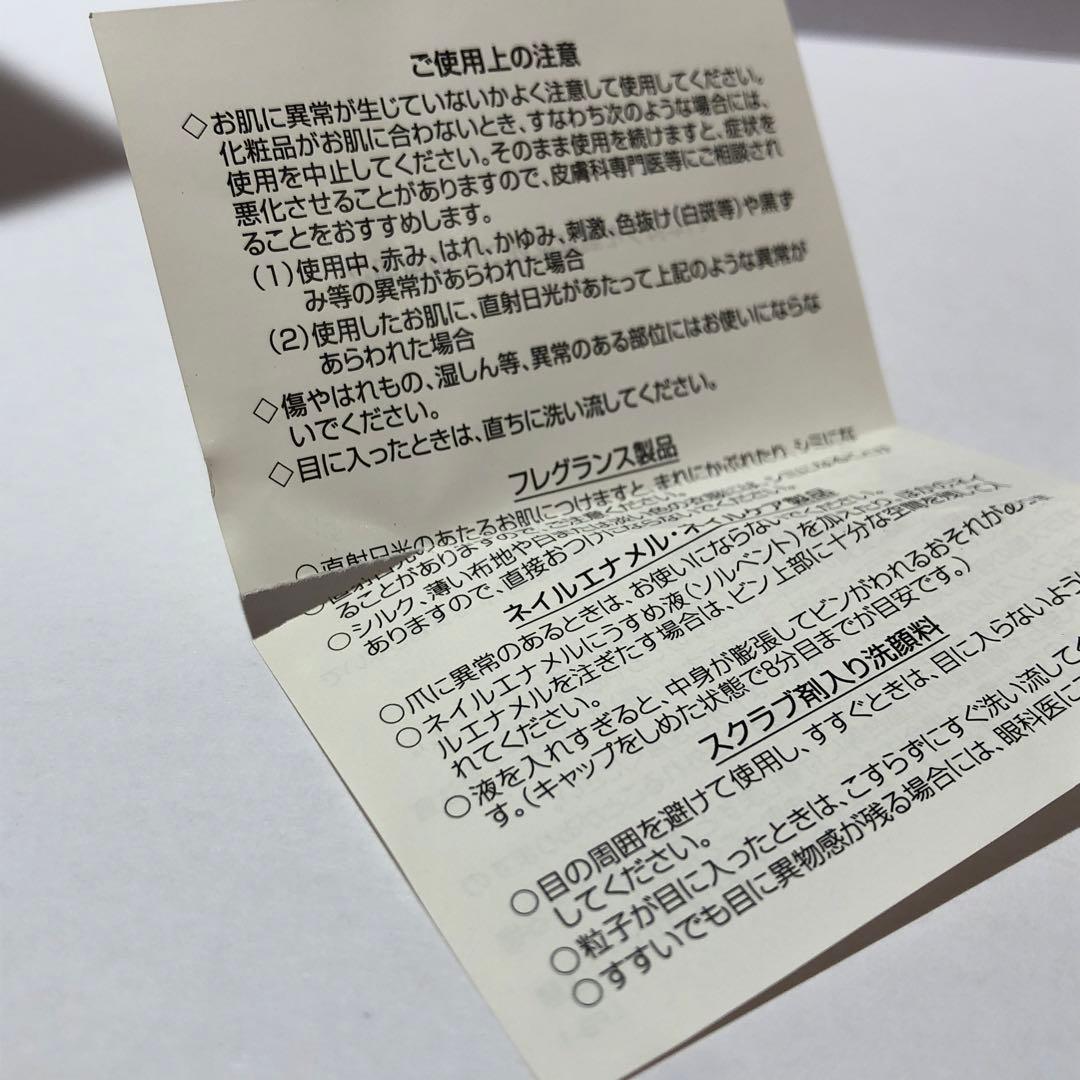 ご使用上の注意
◇お肌に異常が生じていないかよく注意して使用してください。
化粧品がお肌に合わないとき、すなわち次のような場合には、
使用を中止してください。そのまま使用を続けますと、症状を
悪化させることがありますので、皮膚科専門医等にご相談され
ることをおすすめします。
(1)使用中、赤み、はれ、かゆみ、刺激、色抜け(白斑等)や黒ず
み等の異常があらわれた場合
(2)使用したお肌に、直射日光があたって上記のような異常が
あらわれた場合
◇傷やはれもの、湿しん等、異常のある部位にはお使いにならな
いでください。
◇目に入ったときは、直ちに洗い流してください。
フレグランス製品
○直射日光のあたるお肌につけますと、まれにかぶれたり、シミにな
ることがありますので、ご注意ください。
○シルク、薄い布地や
ありますので、直接おつけにならないでください。
ネイルエナメル・ネイルケア製品
○爪に異常のあるときは、お使いにならないでください。
○ネイルエナメルにうすめ液(ソルベント)を加えたり
ルエナメルを注ぎたす場合は、ビン上部に十分な空間を残して入
れてください。
○液を入れすぎると、中身が膨張してビンがわれるおそれがありま
す。(キャップをしめた状態で8分目までが目安です。)
スクラブ剤入り洗顔料
○目の周囲を避けて使用し、すすぐときは、目に入らないよう
してください。
○粒子が目に入ったときは、こすらずにすぐ洗い流して
○すすいでも目に異物感が残る場合には、眼科医に